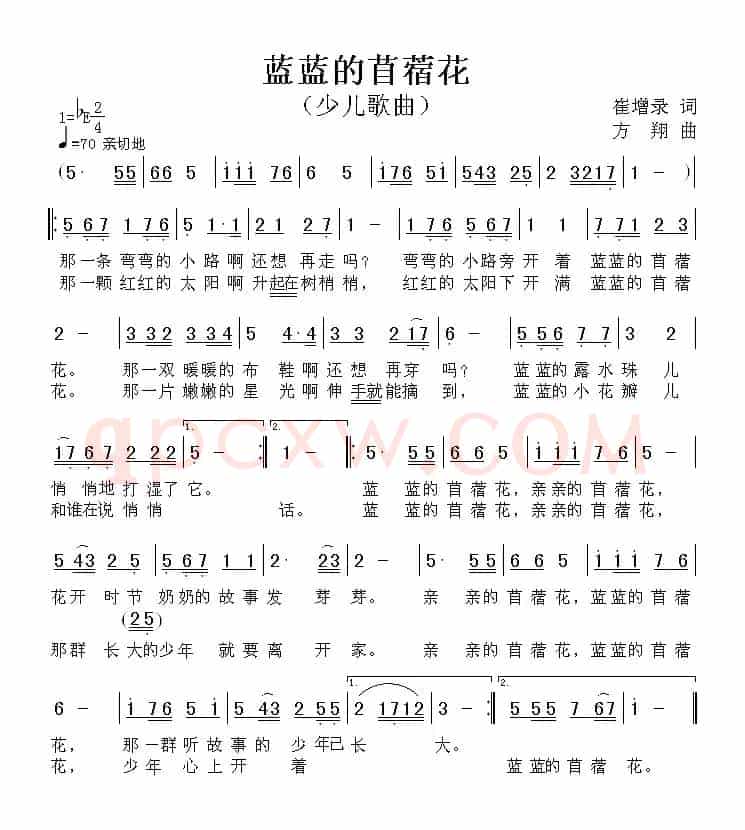 蓝蓝的苜蓿花
（少儿歌曲）
崔增录 词
方 翔 曲
1=♭E 2/4
♩=70 亲切地
( 5· 55 | 66 5 | i i i 76 | 6 5 | i76 5i | 543 25 | 2 3217 | 1 － )
567 176 | 5 1·1 | 21 27 | 1 － | 176 567 | 1 1 | 771 23
那一条 弯弯的 小 路啊 还想 再走 吗？ 弯弯的 小路旁 开 着 蓝蓝的 苜蓿
那一颗 红红的 太 阳啊 升起在 树梢 梢， 红红的 太阳下 开 满 蓝蓝的 苜蓿
2 － | 332 334 | 5 4·4 | 33 217 | 6 － | 556 77 | 3 2
花。 那一双 暖暖的 布 鞋啊 还想 再穿 吗？ 蓝蓝的 露水 珠 儿
花。 那一片 嫩嫩的 星 光啊 伸 手就 能摘 到， 蓝蓝的 小花 瓣 儿
1767 222 | 1. 5 － :| 2. 1 － | 5· 55 | 66 5 | i i i 76 | 6 5
悄 悄地 打湿了 它。 蓝 蓝的 苜蓿 花， 亲亲的 苜蓿 花，
和谁在说 悄悄 话。 蓝 蓝的 苜蓿 花， 亲亲的 苜蓿 花，
5 43 25 | 567 11 | 2· 23 | 2 － | 5· 55 | 66 5 | i i i 76
花开 时节 奶奶的 故事 发 芽芽。 亲 亲的 苜蓿 花， 蓝蓝的 苜蓿
(25)
那群 长 大的少年 就要 离 开 家。 亲 亲的 苜蓿 花， 蓝蓝的 苜蓿
6 － | i76 5i | 5 43 543 | 2 55 | 1. 2 1712 | 3 － :| 2. 555 7 67 | 1 －
花， 那一群 听故 事的 少 年已 长 大。
花， 少年 心上 开 着 蓝蓝的 苜蓿 花。
qpcxw.COM